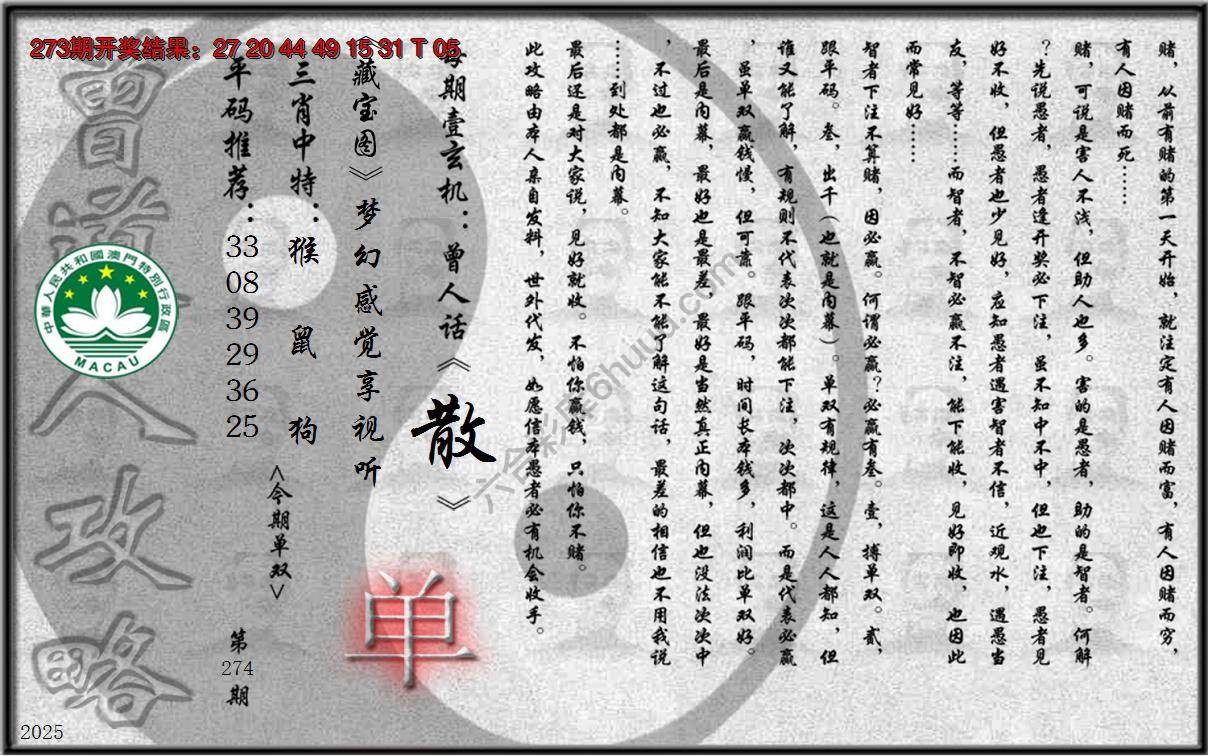 273期开奖结果：27 20 44 49 15 31 T 05
赌，从前有赌的第一天开始，就注定有人因赌而富，有人因赌而穷，
有人因赌而死……
赌，可说是害人不浅，但助人也多。害的是愚者，助的是智者。何解
？先说愚者，愚者逢开奖必下注，虽不知中不中，但也下注，愚者见
好不收，但愚者也少见好，应知愚者遇害智者不信，近观水，遇愚当
友，等等……而智者，不智必赢不注，能下能收，见好即收，也因此
而常见好……
智者下注不算赌，因必赢。何谓必赢？必赢有叁。壹，搏单双。贰，
跟平码。叁，出千（也就是内幕）。单双有规律，这是人人都知，但
谁又能了解，有规则不代表次次都能下注，次次都中。而是代表必赢
，虽单双赢钱慢，但可靠。跟平码，时间长本钱多，利润比单双好。
最后是内幕，最好也是最差，最好是当然真正内幕，但也没法次次中
，不过也必赢，不知大家能不能了解这句话，最差的相信也不用我说
……到处都是内幕。
最后还是对大家说，见好就收。不怕你赢钱，只怕你不赌。
此攻略由本人亲自发料，世外代发，如愿信本愚者必有机会收手。
每期壹玄机：曾人话《散》
《藏宝图》梦幻感觉享视听
三肖中特：猴 鼠 狗
平码推荐：33 08 39 29 36 25
<今期单双>
单
第274期
曾道人攻略
中華人民共和國澳門特別行政區
MACAU
六合彩库6huuu.com
2025